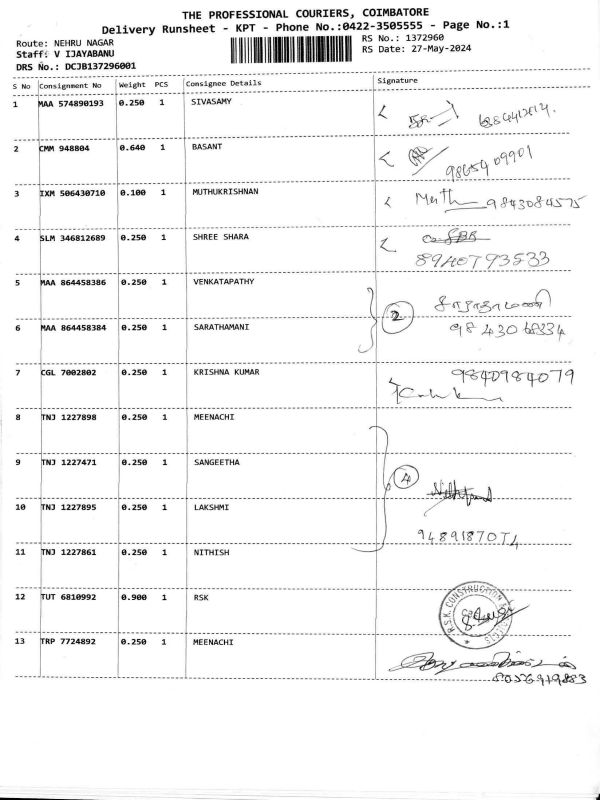 THE PROFESSIONAL COURIERS, COIMBATORE
Delivery Runsheet - KPT - Phone No.:0422-3505555 - Page No.:1
Route: NEHRU NAGAR
RS No.: 1372960
Staff: V IJAYABANU
RS Date: 27-May-2024
DRS No.: DCJB137296001
S No Consignment No Weight PCS Consignee Details Signature
1 MAA 574890193 0.250 1 SIVASAMY
2 CMM 948804 0.640 1 BASANT
9865409901
3 IXM 506430710 0.100 1 MUTHUKRISHNAN
Muth 9843084575
4 SLM 346812689 0.250 1 SHREE SHARA
5 MAA 864458386 0.250 1 VENKATAPATHY
2 சாரதாமணி
6 MAA 864458384 0.250 1 SARATHAMANI
7 CGL 7002802 0.250 1 KRISHNA KUMAR
9840984079
8 TNJ 1227898 0.250 1 MEENACHI
9 TNJ 1227471 0.250 1 SANGEETHA
4
10 TNJ 1227895 0.250 1 LAKSHMI
9489187074
11 TNJ 1227861 0.250 1 NITHISH
12 TUT 6810992 0.900 1 RSK
R.S.K. CONSTRUCTION
13 TRP 7724892 0.250 1 MEENACHI